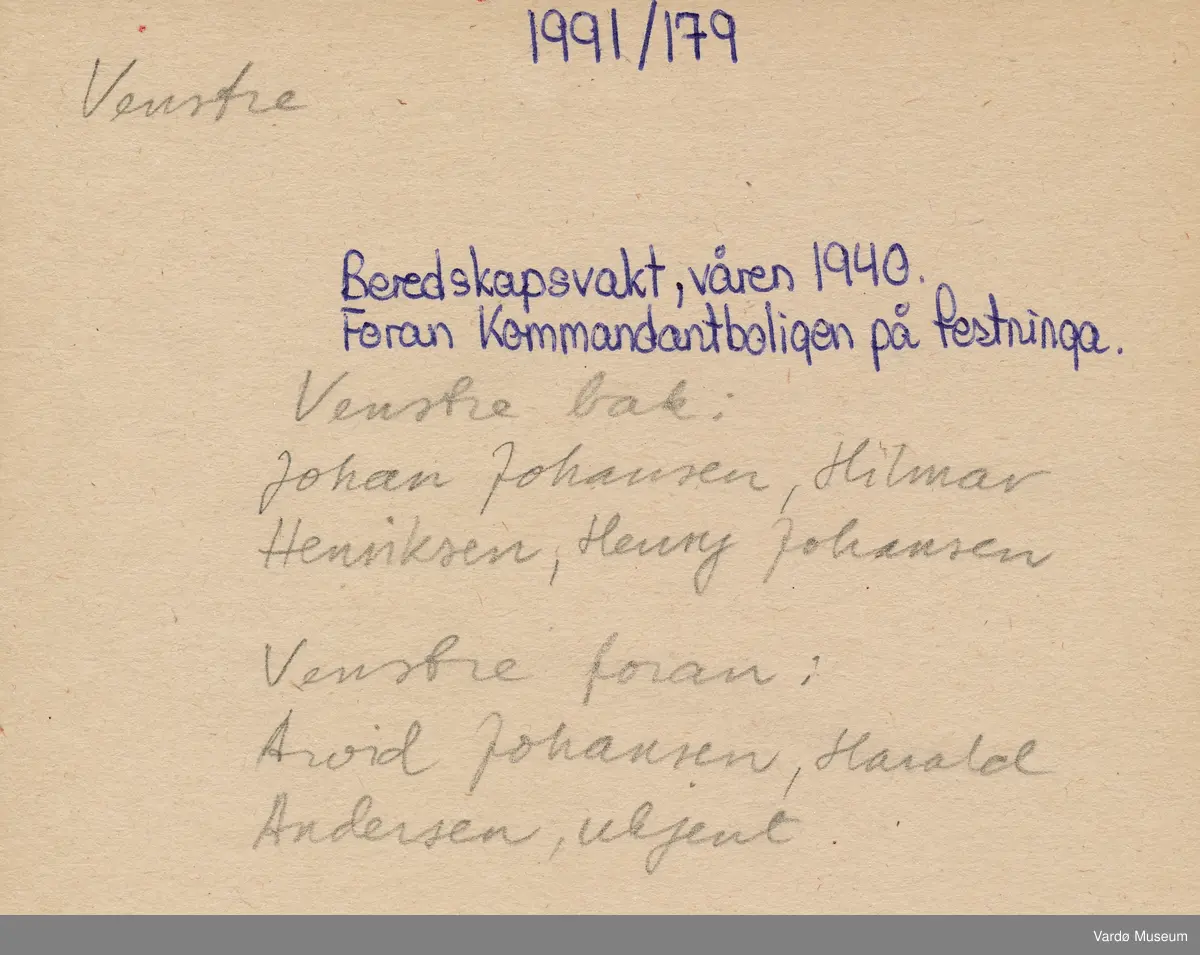 1991/179
Venstre
Beredskapsvakt, våren 1940.
Foran Kommandantboligen på festninga.
Venstre bak:
Johan Johansen, Hilmar
Henriksen, Henry Johansen
Venstre foran:
Arvid Johansen, Harald
Andersen, ukjent
Vardø Museum